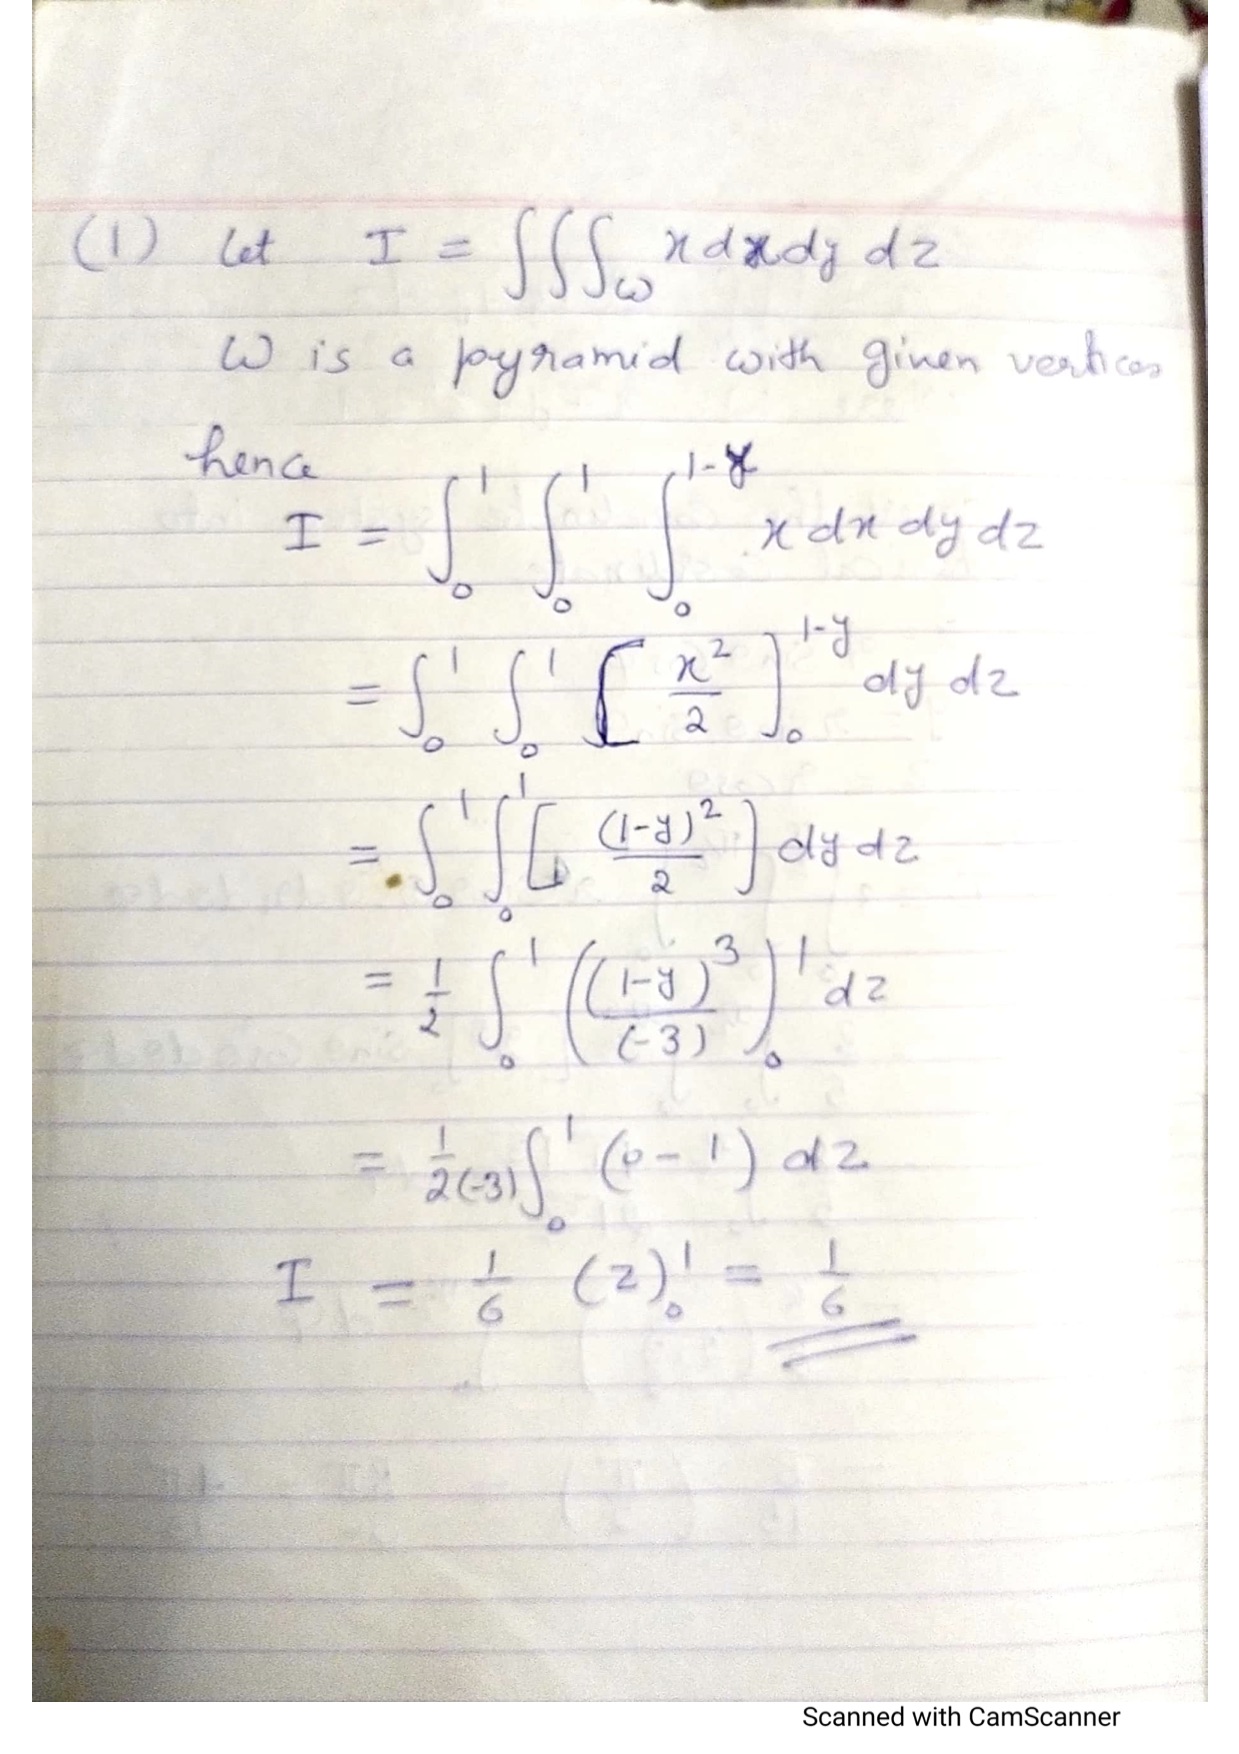 (1) Let I = ∫∫∫_ω x dx dy dz
ω is a pyramid with given vertices
hence
I = ∫₀¹ ∫₀¹ ∫₀^(1-y) x dx dy dz
= ∫₀¹ ∫₀¹ [x²/2]₀^(1-y) dy dz
= ∫₀¹ ∫₀¹ [(1-y)²/2] dy dz
= 1/2 ∫₀¹ ((1-y)³/(-3))₀¹ dz
= 1/2(-3) ∫₀¹ (0-1) dz
I = 1/6 (z)₀¹ = 1/6
Scanned with CamScanner